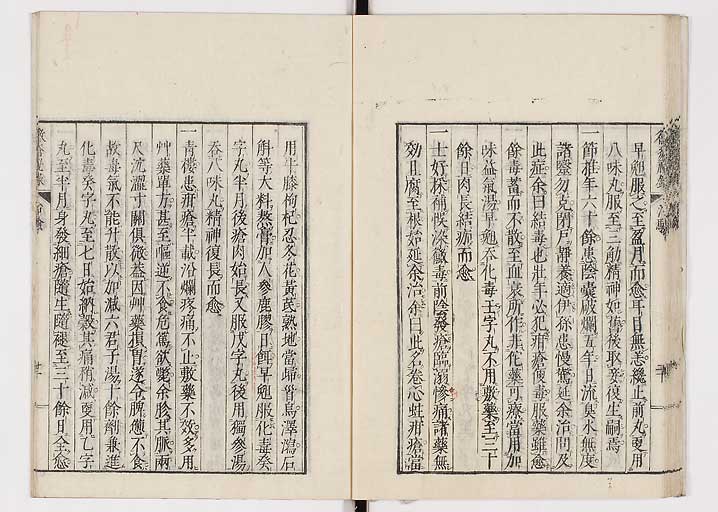 早麯服之至盈月而愈耳目無恙纔止前丸更用
八味丸服至三觔精神如舊後娶妾復生嗣焉
一節推年六十餘患陰囊破爛五年日流臭水無度
諸藥勿克閉戶靜養適伊徐患慢驚延余治問及
此症余曰結毒也壯年必犯疳瘡便毒服藥雖愈
餘毒蓄而不散至血衰所作非化藥可療當用加
味益氣湯早麯吞化毒壬字丸不用敷藥至三十
餘日肉長結痂而愈
一士好採補悞深黴毒前陰發瘡臨溺慘痛諸藥無
効且腐至根始延余治余曰此名卷心蛀疳瘡當
用牛膝枸杞忍冬花黃芪熟地當歸首烏澤瀉石
斛等大料熬膏加人參鹿膠日餌早麯服化毒癸
字丸半月後瘡肉始長又服戊字丸後用獨參湯
吞八味丸精神復長而愈
一青樓患疳瘡半載汾爛疼痛不止敷藥不效多用
艸藥單方甚至嘔逆不食危篤欲斃余胗其脈兩
尺沉濇寸關俱微蓋因艸藥損胃遂令脾憊不食
故毒氣不能升散以加減六君子湯十餘劑兼進
化毒癸字丸至七日始納穀其痛稍減更用乙字
丸至半月身發細瘡隨生隨褪至三十餘日全愈